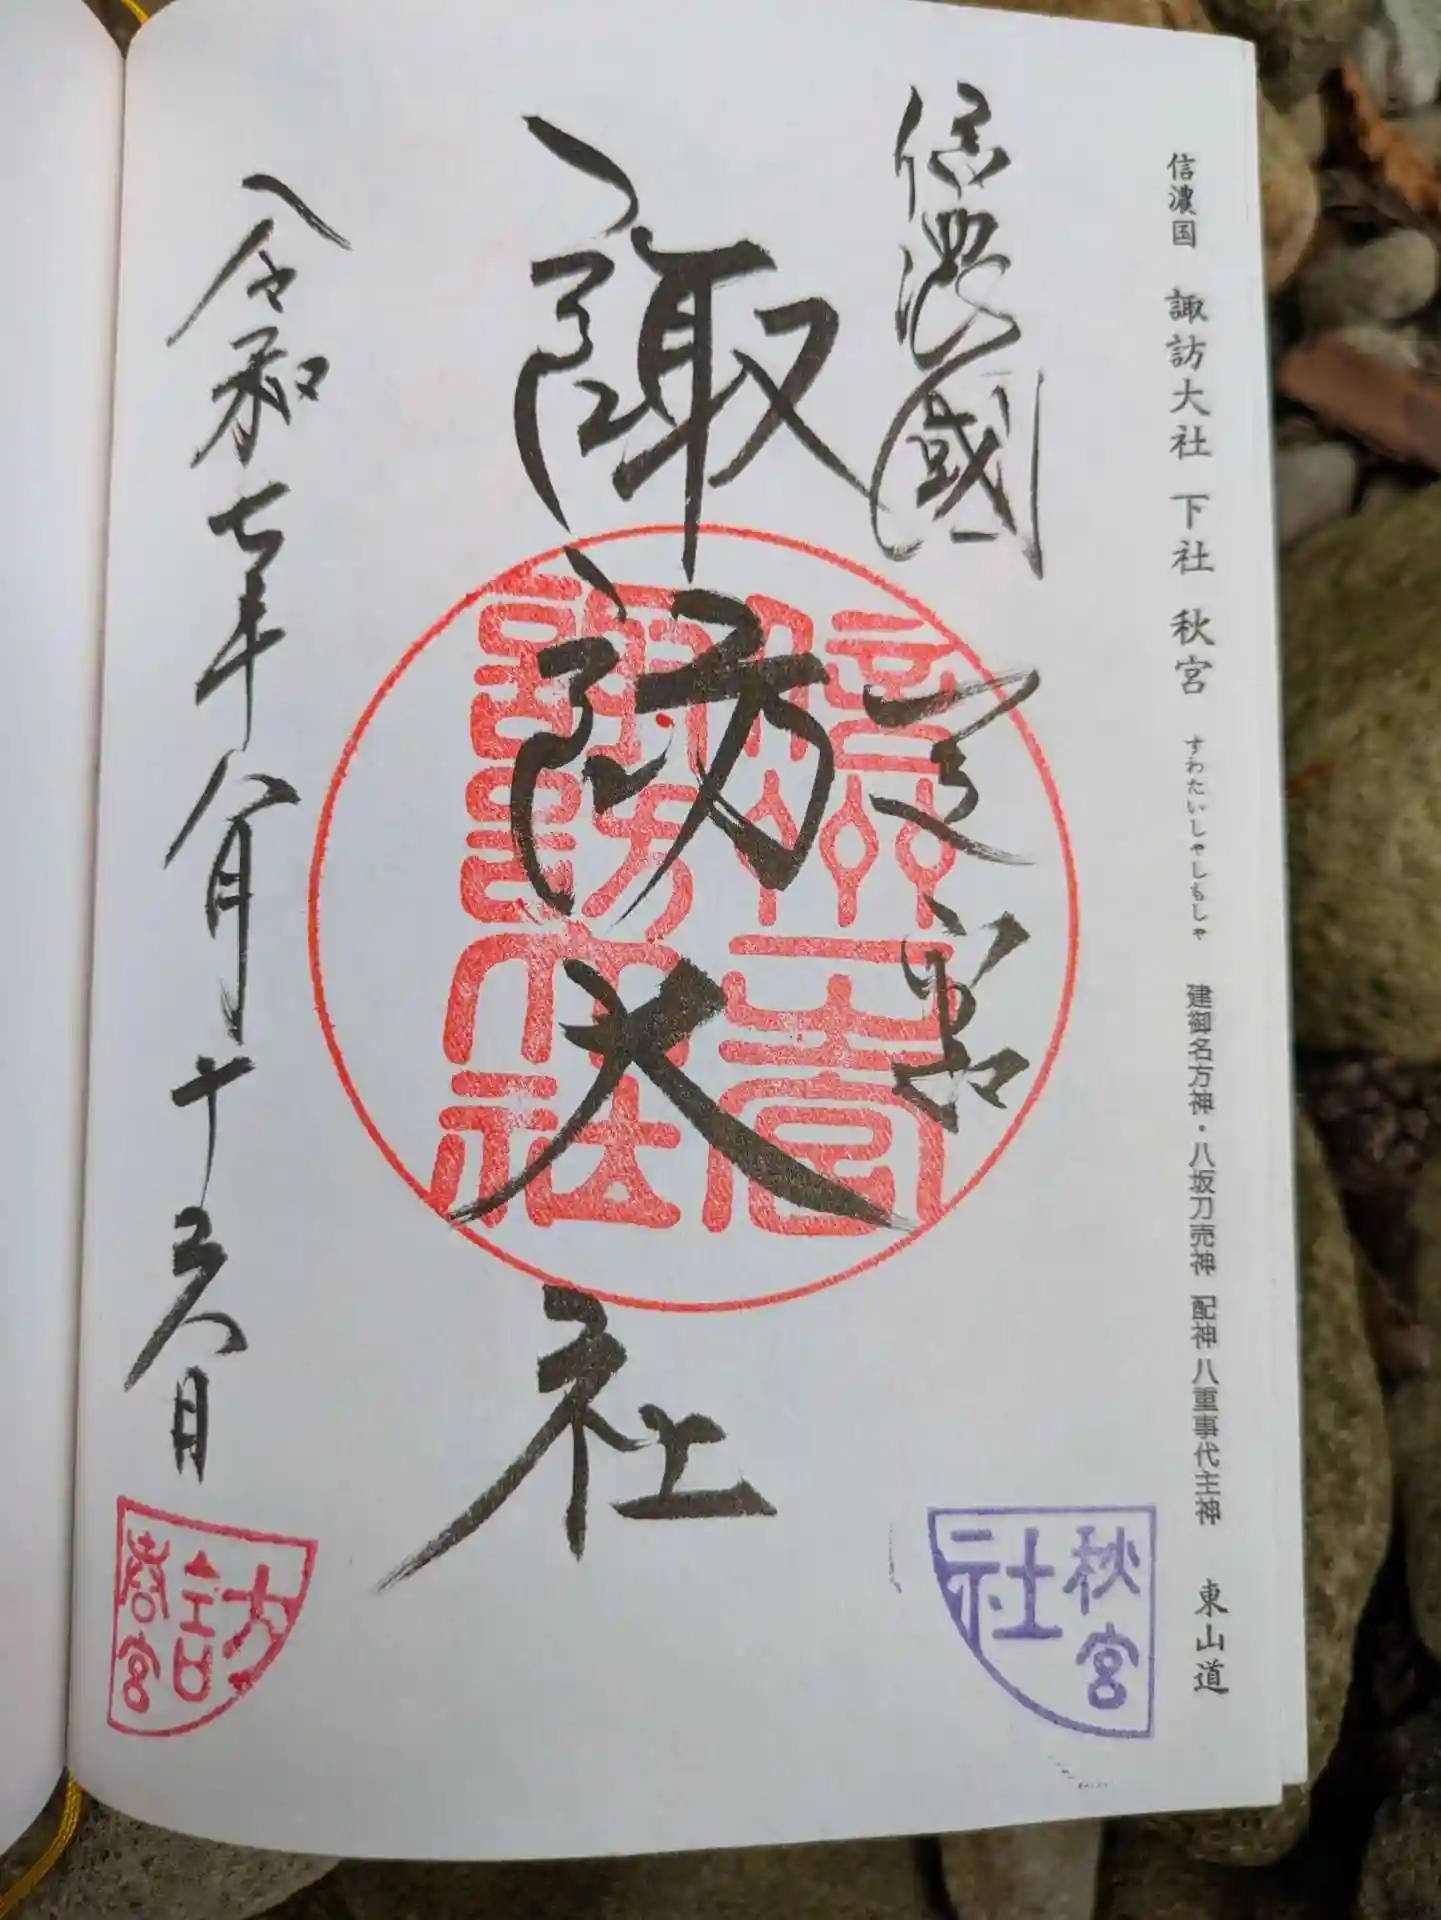 信濃国 諏訪大社 下社 秋宮 すわたいしゃしもしゃ 建御名方神・八坂刀売神 配神 八重事代主神 東山道
信濃國 一之宮
諏訪大社
信州一之宮
諏訪大社
令和七年八月十五日
秋宮
社
大
訪
春宮